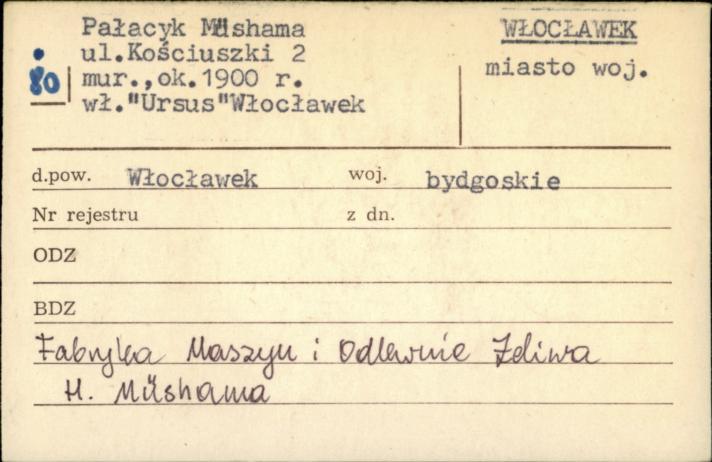 Pałacyk Müshama
ul.Kościuszki 2
mur.,ok.1900 r.
wł."Ursus"Włocławek
80
WŁOCŁAWEK
miasto woj.
d.pow. Włocławek woj. bydgoskie
Nr rejestru z dn.
ODZ
BDZ
Fabryka Maszyn i Odlewnie Żeliwa
H. Müshama